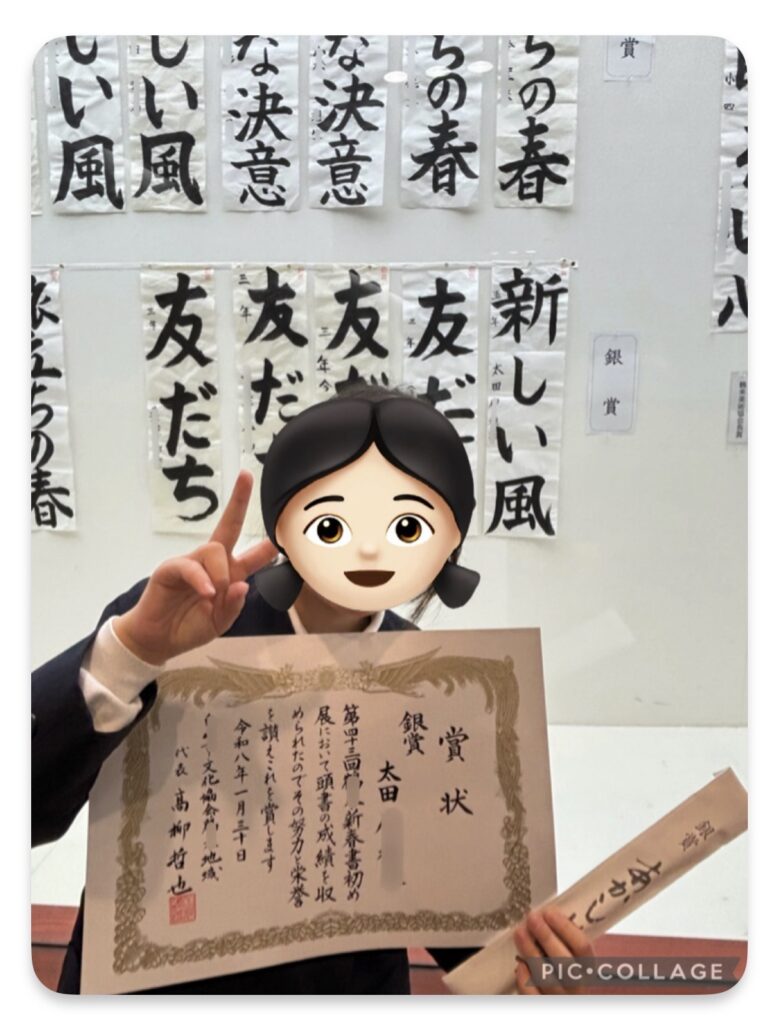 しい風
しい風
な決意
な決意
ちの春
ちの春
賞
旅立ちの春
友だち
三年
友だ
三年
友だ
友だ
新しい風
太田
銀賞
賞状
銀賞
太田
第四十三回
新春書初め
展において頭書の成績を収
められたのでその努力と栄誉
を讃えこれを賞します
令和八年一月三十日
文化協会
地域
代表 髙柳哲也
銀賞
あかし
PIC•COLLAGE